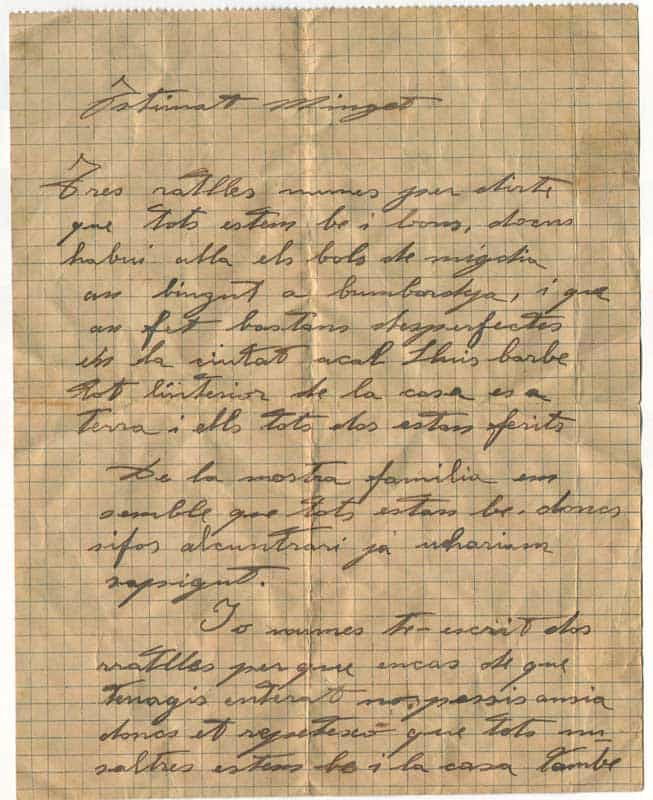 Estimat Minget
Tres ratlles numes per dirte
que tots estem be i bons, doncs
habui alla els bols de migdia
an bingut a bumbordeja, i que
an fet bastans desperfectes
en la ciutat acal Lluis barbe
tot l'interior de la casa es a
terra i ells tots dos estan ferits
De la nostra familia em
semble que tots estan be. doncs
sifos alcuntrari ja uhariam
sapigut.
Jo numes te escrit dos
rratlles per que encas de que
tenagis enterat nos passis ansia
doncs et repeteixo que tots nu-
saltres estem be i la casa tambe